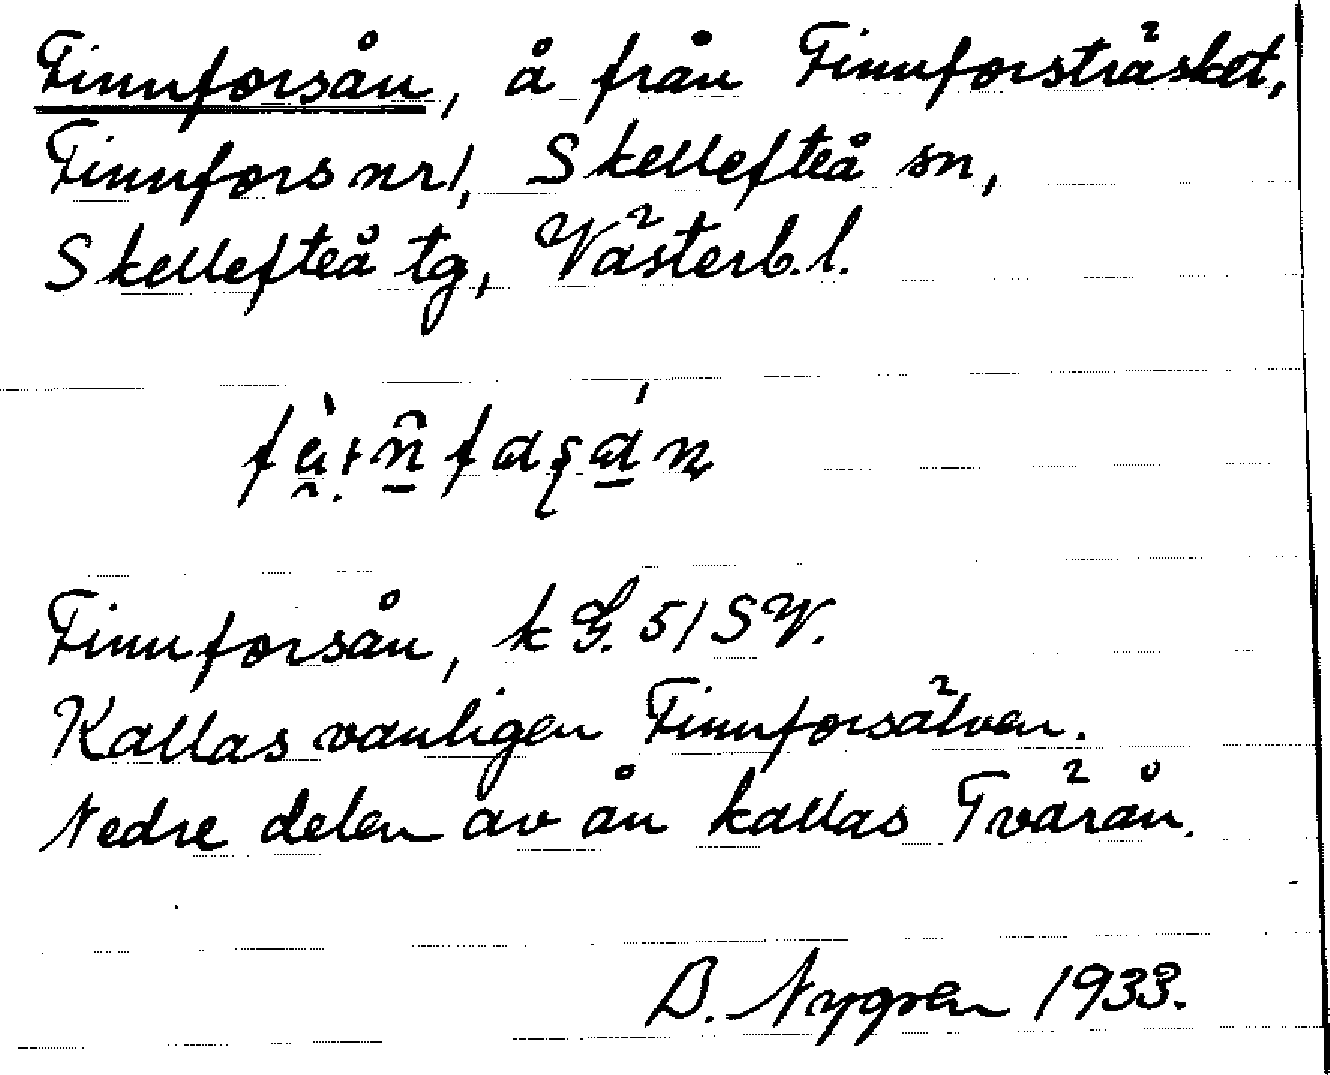 Finnforsån, å från Finnforsträsket,
Finnfors nr 1, Skellefteå sn,
Skellefteå tg, Västerb. l.
Finnforsån, k G. 51 SV.
Kallas vanligen Finnforsälven.
Nedre delen av ån kallas Tvärån.
B. Nygren 1933.